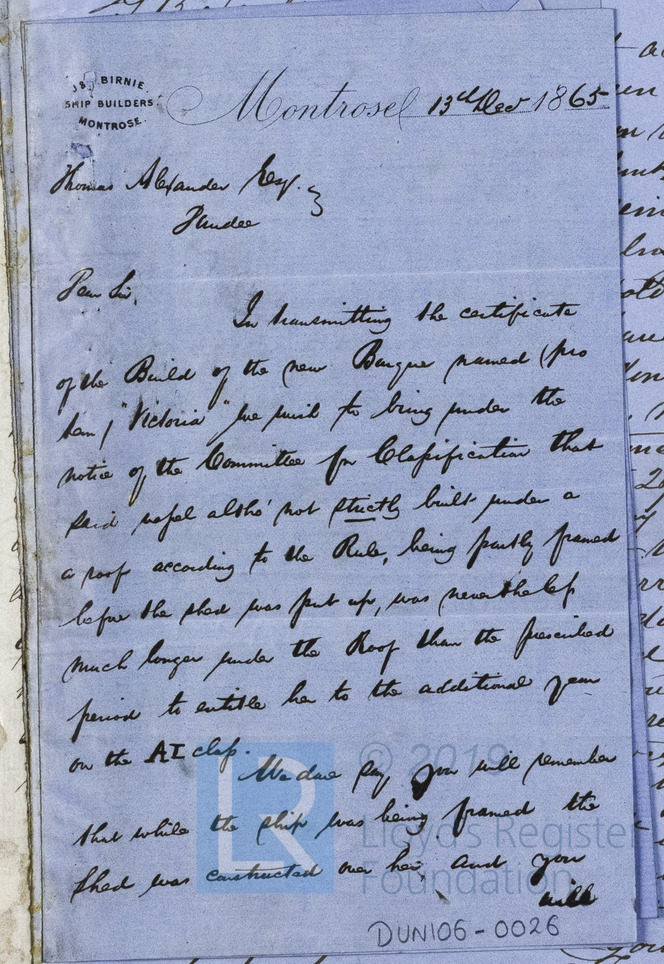 J & D BIRNIE,
SHIP BUILDERS.
MONTROSE.
Montrose 13th Decr 1865
Thomas Alexander Esq.
Dundee
Dear Sir,
In transmitting the certificate
of the Build of the new Barque named (pro
tem) "Victoria" we wish to bring under the
notice of the Committee for Classification that
said vessel altho' not strictly built under a
a roof according to the Rule, being partly framed
before the shed was put up, was nevertheless
much longer under the Roof than the prescribed
period to entitle her to the additional year
on the AI class.
We dare say you will remember
that while the ship was being framed the
shed was constructed over her, and you
will
LR © 2019
Lloyd's Register
Foundation
DUN106-0026